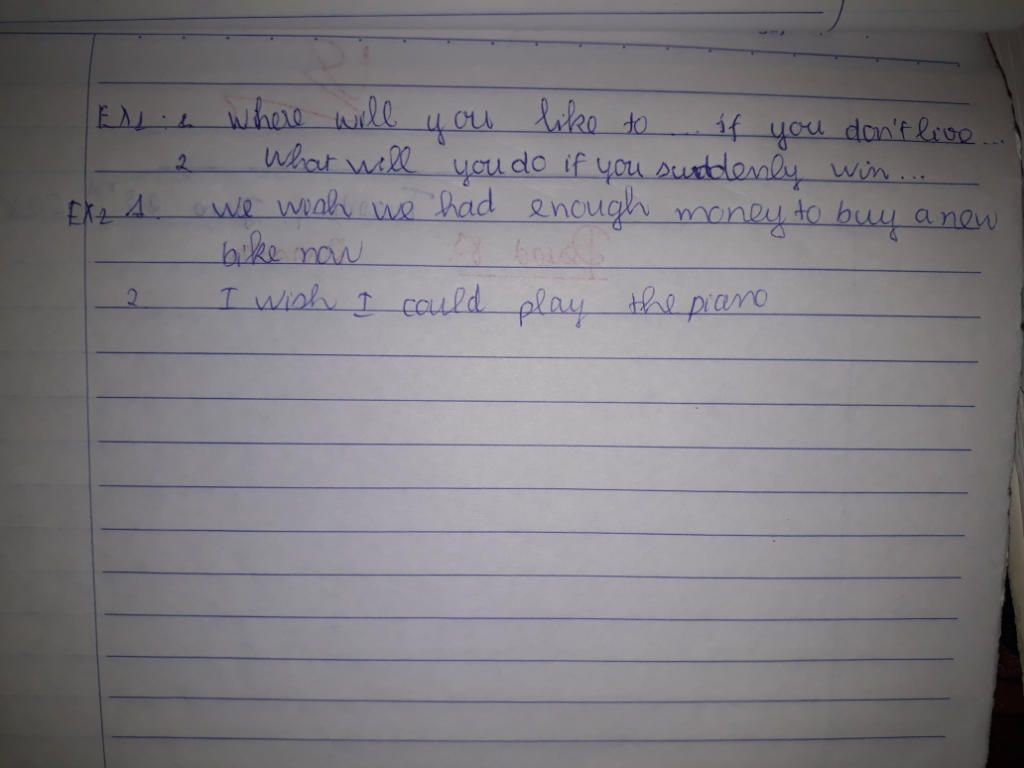 Ex1. 1 where will you like to ... if you don't live...
2 What will you do if you suddenly win...
Ex2 1. we wish we had enough money to buy a new
bike now
2 I wish I could play the piano